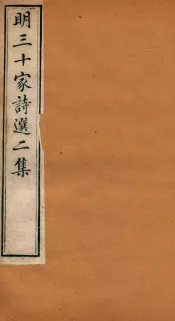 明三十家詩選二集